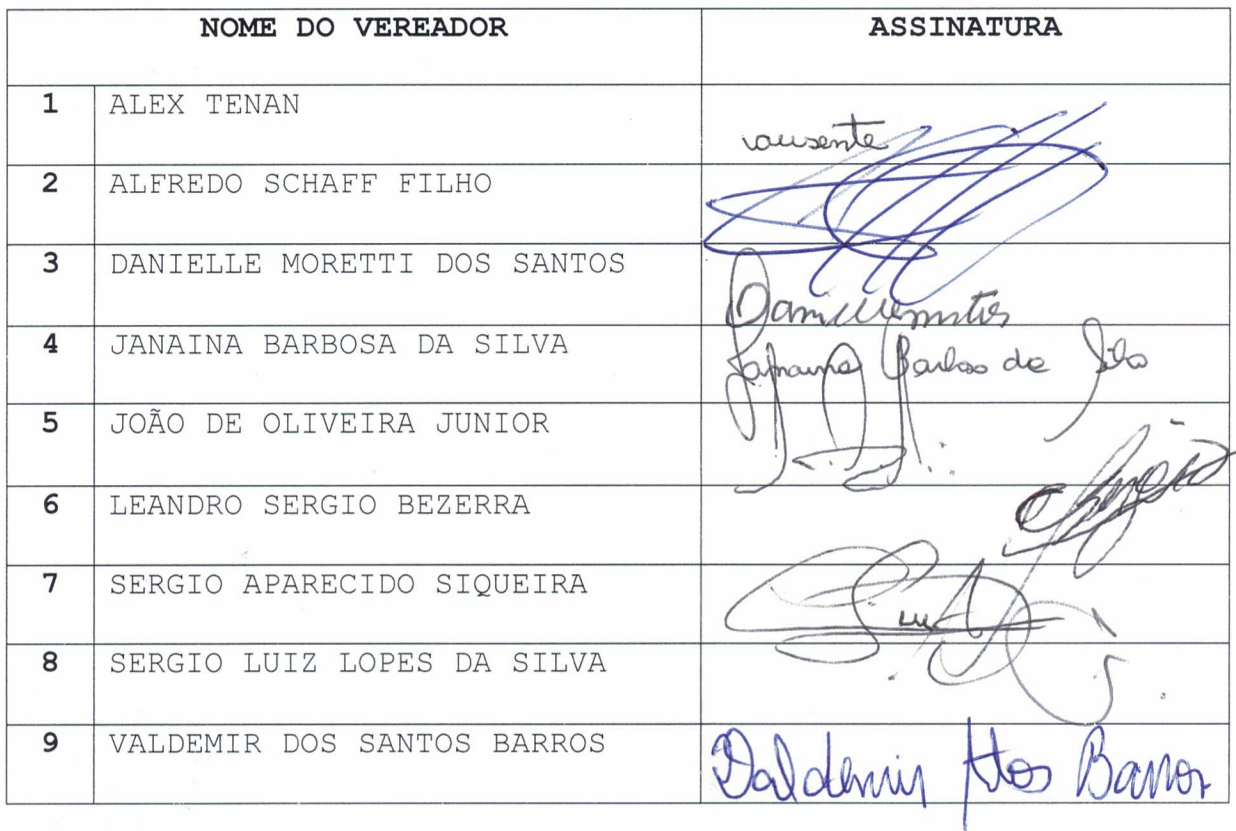 NOME DO VEREADOR ASSINATURA
1 ALEX TENAN ausente
2 ALFREDO SCHAFF FILHO
3 DANIELLE MORETTI DOS SANTOS
4 JANAINA BARBOSA DA SILVA Janaina Barbosa da Silva
5 JOÃO DE OLIVEIRA JUNIOR
6 LEANDRO SERGIO BEZERRA
7 SERGIO APARECIDO SIQUEIRA
8 SERGIO LUIZ LOPES DA SILVA
9 VALDEMIR DOS SANTOS BARROS Valdemir Stos Barros